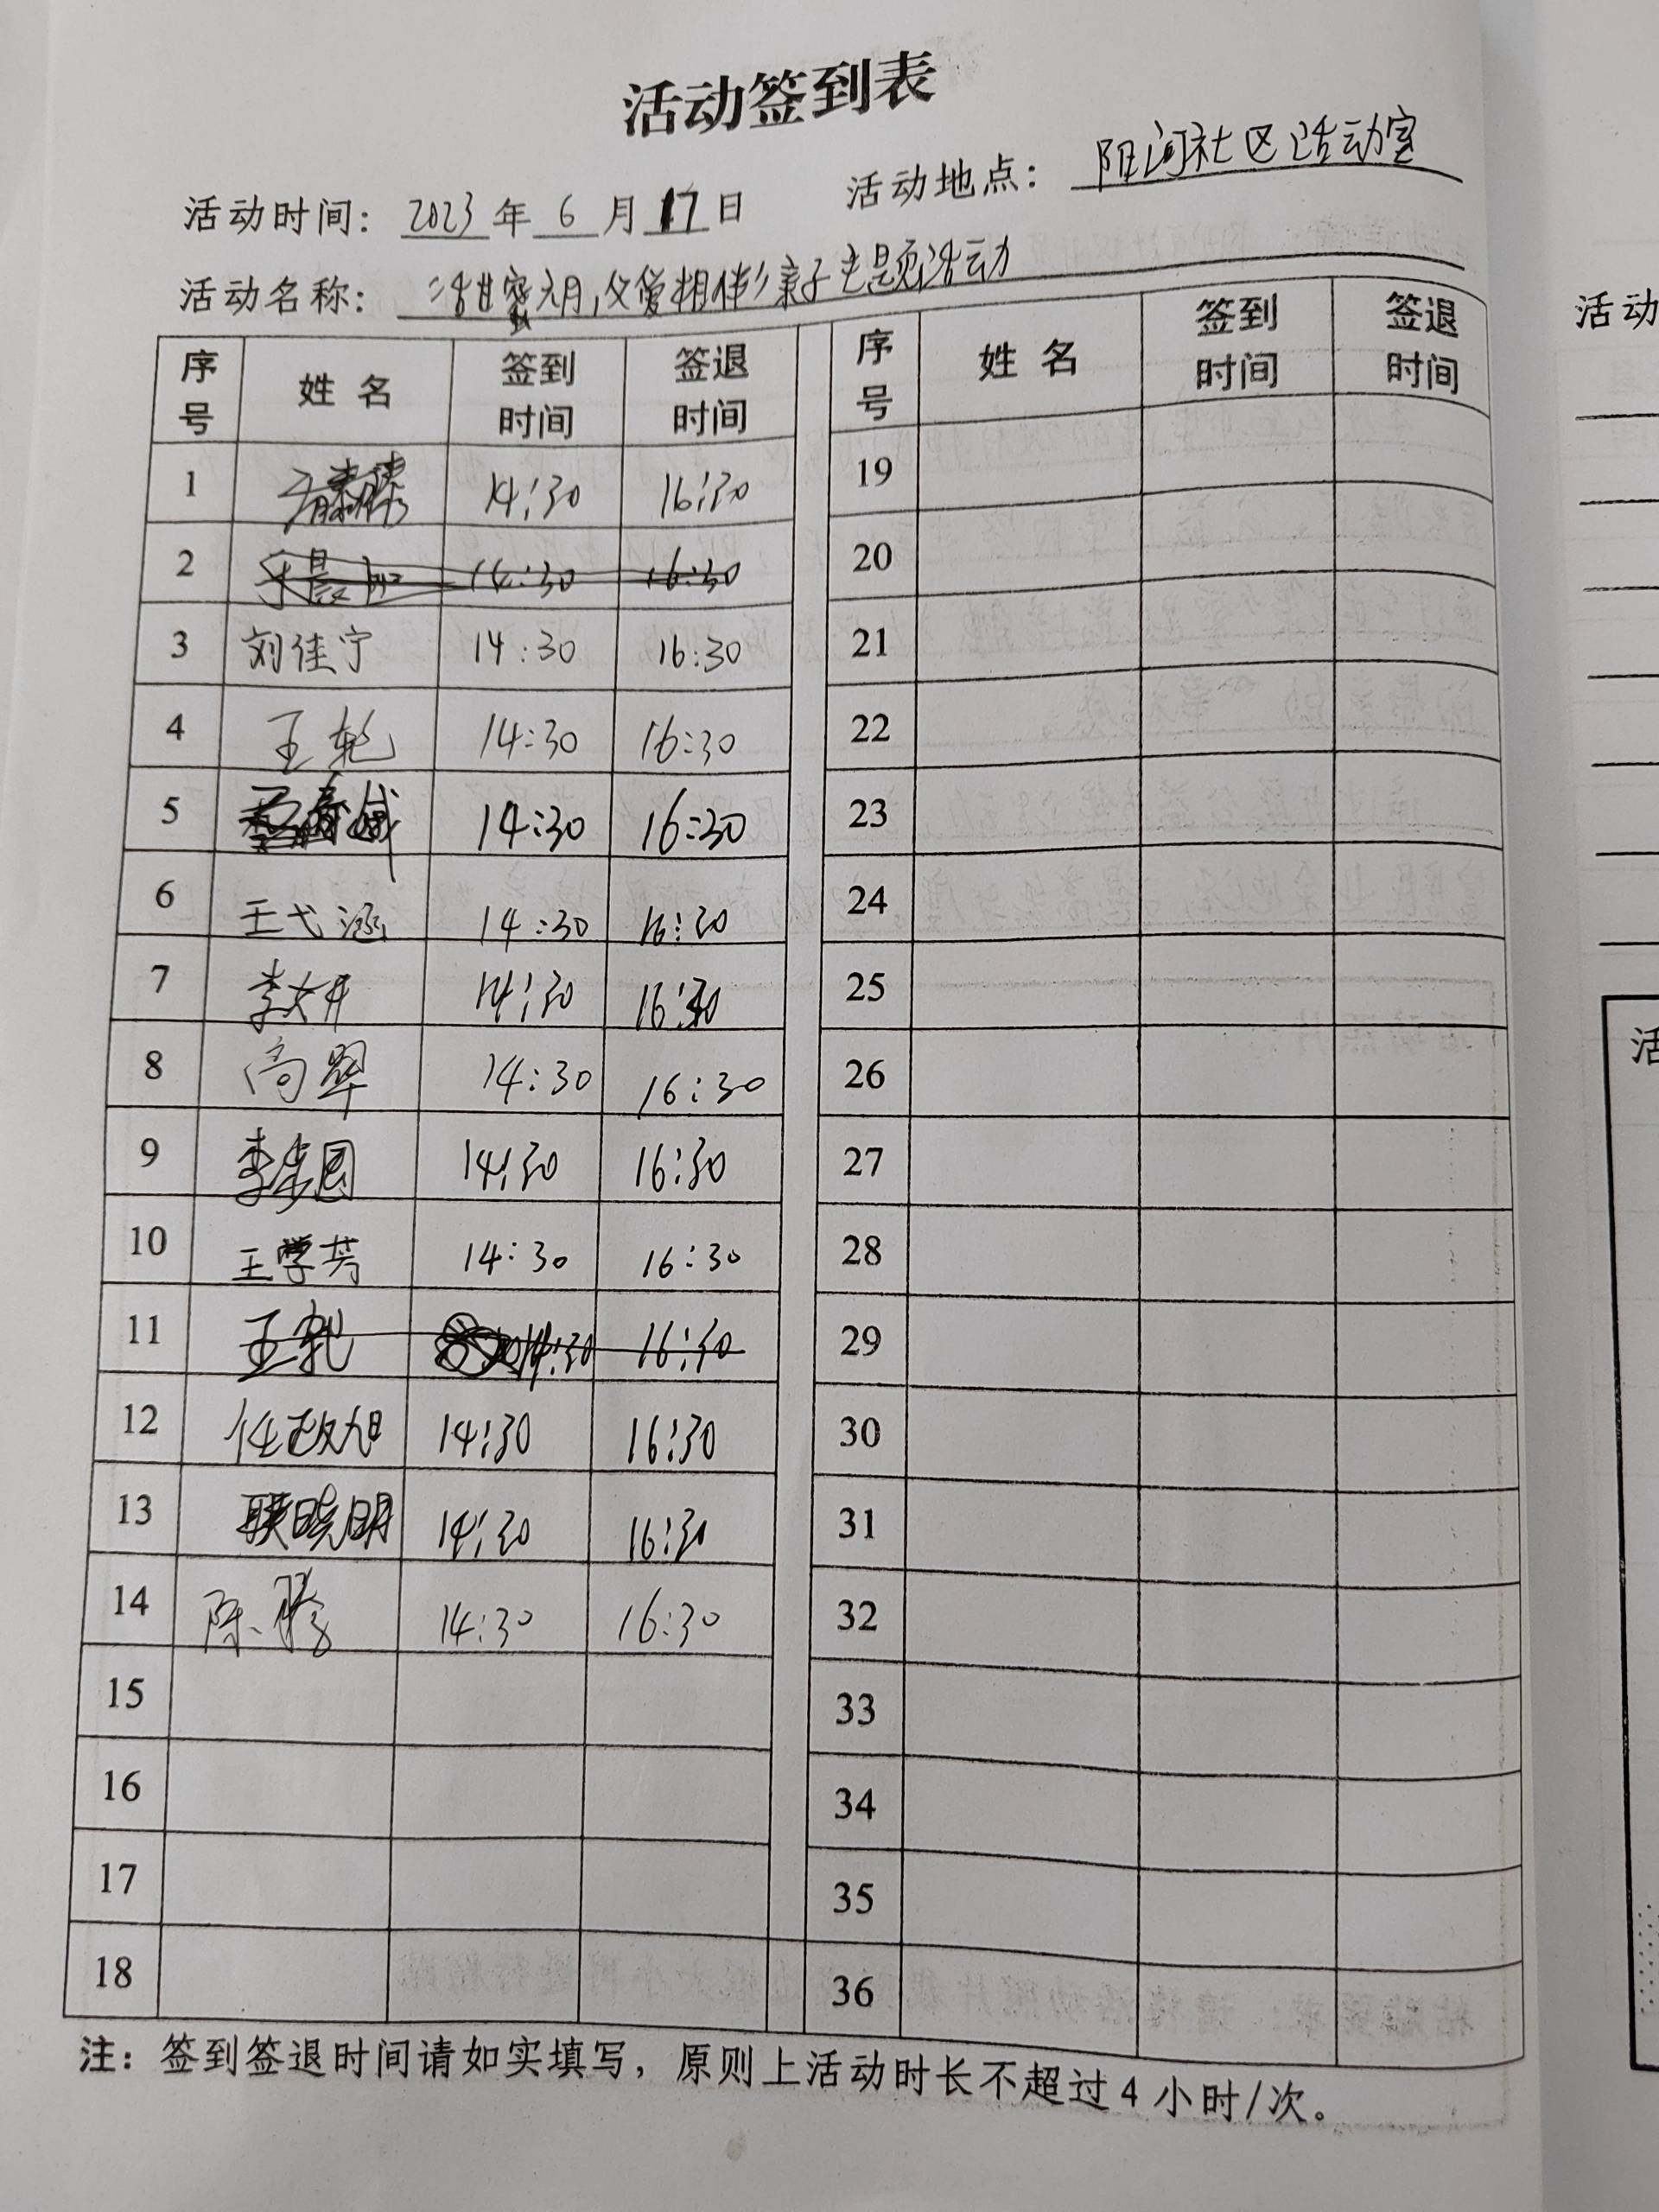 活动签到表
活动时间：2023年6月17日 活动地点：阳河社区活动室
活动名称：活甘蜜六月，父爱相伴亲子主题活动
序号 姓名 签到时间 签退时间
1 14:30 16:30
2 14:30 16:30
3 刘佳宁 14:30 16:30
4 王乾 14:30 16:30
5 14:30 16:30
6 王弋涵 14:30 16:30
7 李文开 14:30 16:30
8 高翠 14:30 16:30
9 李 园 14:30 16:30
10 王学芳 14:30 16:30
11 王乾 14:30 16:30
12 任政旭 14:30 16:30
13 联晓明 14:30 16:30
14 陈 14:30 16:30
15
16
17
18
序号 姓名 签到时间 签退时间
19
20
21
22
23
24
25
26
27
28
29
30
31
32
33
34
35
36
注：签到签退时间请如实填写，原则上活动时长不超过4小时/次。
活动
活